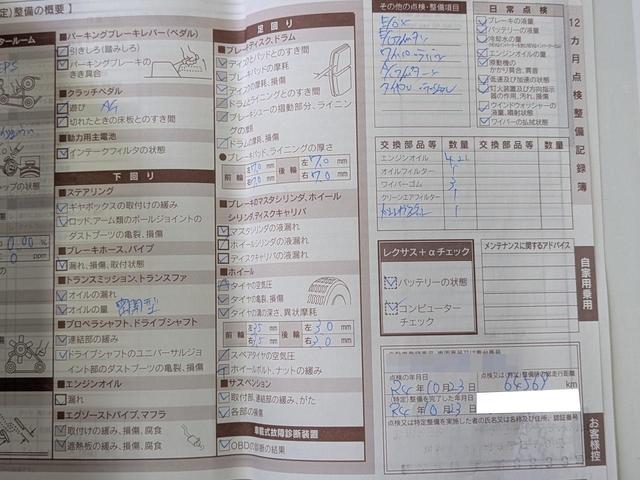 定)整備の概要】
パーキングブレーキレバー(ペダル)
引きしろ(踏みしろ)
パーキングブレーキの
きき具合
クラッチペダル
遊び
切れたときの床板とのすき間
動力用主電池
インテークフィルタの状態
下回り
ステアリング
ギヤボックスの取付けの緩み
ロッド、アーム類のボールジョイントの
ダストブーツの亀裂、損傷
ブレーキホース、パイプ
漏れ、損傷、取付状態
トランスミッション、トランスファ
オイルの漏れ
オイルの量 密閉型
プロペラシャフト、ドライブシャフト
連結部の緩み
ドライブシャフトのユニバーサルジョ
イント部のダストブーツの亀裂、損傷
エンジンオイル
漏れ
エグゾーストパイプ、マフラ
取付けの緩み、損傷、腐食
遮熱板の緩み、損傷、腐食
足回り
ブレーキディスク、ドラム
ディスクとパッドとのすき間
ブレーキパッドの摩耗
ディスクの摩耗、損傷
ドラムとライニングとのすき間
ブレーキシューの摺動部分、ライニン
グの摩耗
ドラムの摩耗、損傷
ブレーキパッド、ライニングの厚さ
前輪 左7.0mm 後輪 左7.0mm
右7.0mm 右7.0mm
ブレーキのマスタシリンダ、ホイール
シリンダ、ディスクキャリパ
マスタシリンダの液漏れ
ホイールシリンダの液漏れ
ディスクキャリパの液漏れ
ホイール
タイヤの空気圧
タイヤの亀裂、損傷
タイヤの溝の深さ、異状摩耗
前輪 左3.5mm 後輪 左3.0mm
右3.5mm 右3.0mm
スペアタイヤの空気圧
ホイールボルト、ナットの緩み
サスペンション
取付部、連結部の緩み、がた
各部の損傷
車載式故障診断装置
OBDの診断の結果
その他の点検・整備項目
日常点検
ブレーキの液量
バッテリーの液量
冷却水の量
エンジンオイルの量
原動機の
かかり具合、異音
低速及び加速の状態
灯火装置及び方向指示
器の作用、汚れ、損傷
ウインドウォッシャーの
液量、噴射状態
ワイパーの払拭状態
交換部品等 数量 交換部品等 数量
エンジンオイル 4.2L
オイルフィルター 1
ワイパーゴム 3
クリーンエアフィルター 1
レクサス+αチェック
バッテリーの状態
コンピューター
チェック
メンテナンスに関するアドバイス
点検の年月日
R4年10月23日
点検又は(特定)整備時の総走行距離
64569 km
(特定)整備を完了した年月日
R4年10月23日
点検又は特定整備を実施した者の氏名又は名称及び住所、認証番号
12カ月点検整備記録簿
自家用乗用
お客様控